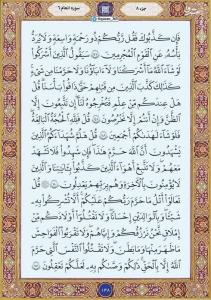 جزء ۸
سوره انعام ۶
فَإِن كَذَّبُوكَ فَقُل رَّبُّكُمْ ذُو رَحْمَةٍ وَٰسِعَةٍ وَلَا يُرَدُّ
بَأْسُهُۥ عَنِ ٱلْقَوْمِ ٱلْمُجْرِمِينَ ۝١٤٧ سَيَقُولُ ٱلَّذِينَ أَشْرَكُوا۟
لَوْ شَآءَ ٱللَّهُ مَآ أَشْرَكْنَا وَلَآ ءَابَآؤُنَا وَلَا حَرَّمْنَا مِن شَىْءٍ
كَذَٰلِكَ كَذَّبَ ٱلَّذِينَ مِن قَبْلِهِمْ حَتَّىٰ ذَاقُوا۟ بَأْسَنَا قُلْ
هَلْ عِندَكُم مِّنْ عِلْمٍ فَتُخْرِجُوهُ لَنَآ إِن تَتَّبِعُونَ إِلَّا
ٱلظَّنَّ وَإِنْ أَنتُمْ إِلَّا تَخْرُصُونَ ۝١٤٨ قُلْ فَلِلَّهِ ٱلْحُجَّةُ ٱلْبَٰلِغَةُ
فَلَوْ شَآءَ لَهَدَىٰكُمْ أَجْمَعِينَ ۝١٤٩ قُلْ هَلُمَّ شُهَدَآءَكُمُ ٱلَّذِينَ
يَشْهَدُونَ أَنَّ ٱللَّهَ حَرَّمَ هَٰذَا فَإِن شَهِدُوا۟ فَلَا تَشْهَدْ
مَعَهُمْ وَلَا تَتَّبِعْ أَهْوَآءَ ٱلَّذِينَ كَذَّبُوا۟ بِـَٔايَٰتِنَا وَٱلَّذِينَ
لَا يُؤْمِنُونَ بِٱلْءَاخِرَةِ وَهُم بِرَبِّهِمْ يَعْدِلُونَ ۝١٥٠ قُلْ
تَعَالَوْا۟ أَتْلُ مَا حَرَّمَ رَبُّكُمْ عَلَيْكُمْ أَلَّا تُشْرِكُوا۟ بِهِۦ
شَيْـًٔا وَبِٱلْوَٰلِدَيْنِ إِحْسَٰنًا وَلَا تَقْتُلُوٓا۟ أَوْلَٰدَكُم مِّنْ
إِمْلَٰقٍ نَّحْنُ نَرْزُقُكُمْ وَإِيَّاهُمْ وَلَا تَقْرَبُوا۟ ٱلْفَوَٰحِشَ
مَا ظَهَرَ مِنْهَا وَمَا بَطَنَ وَلَا تَقْتُلُوا۟ ٱلنَّفْسَ ٱلَّتِى حَرَّمَ
ٱللَّهُ إِلَّا بِٱلْحَقِّ ذَٰلِكُمْ وَصَّىٰكُم بِهِۦ لَعَلَّكُمْ تَعْقِلُونَ ۝١٥١
۱۴۸